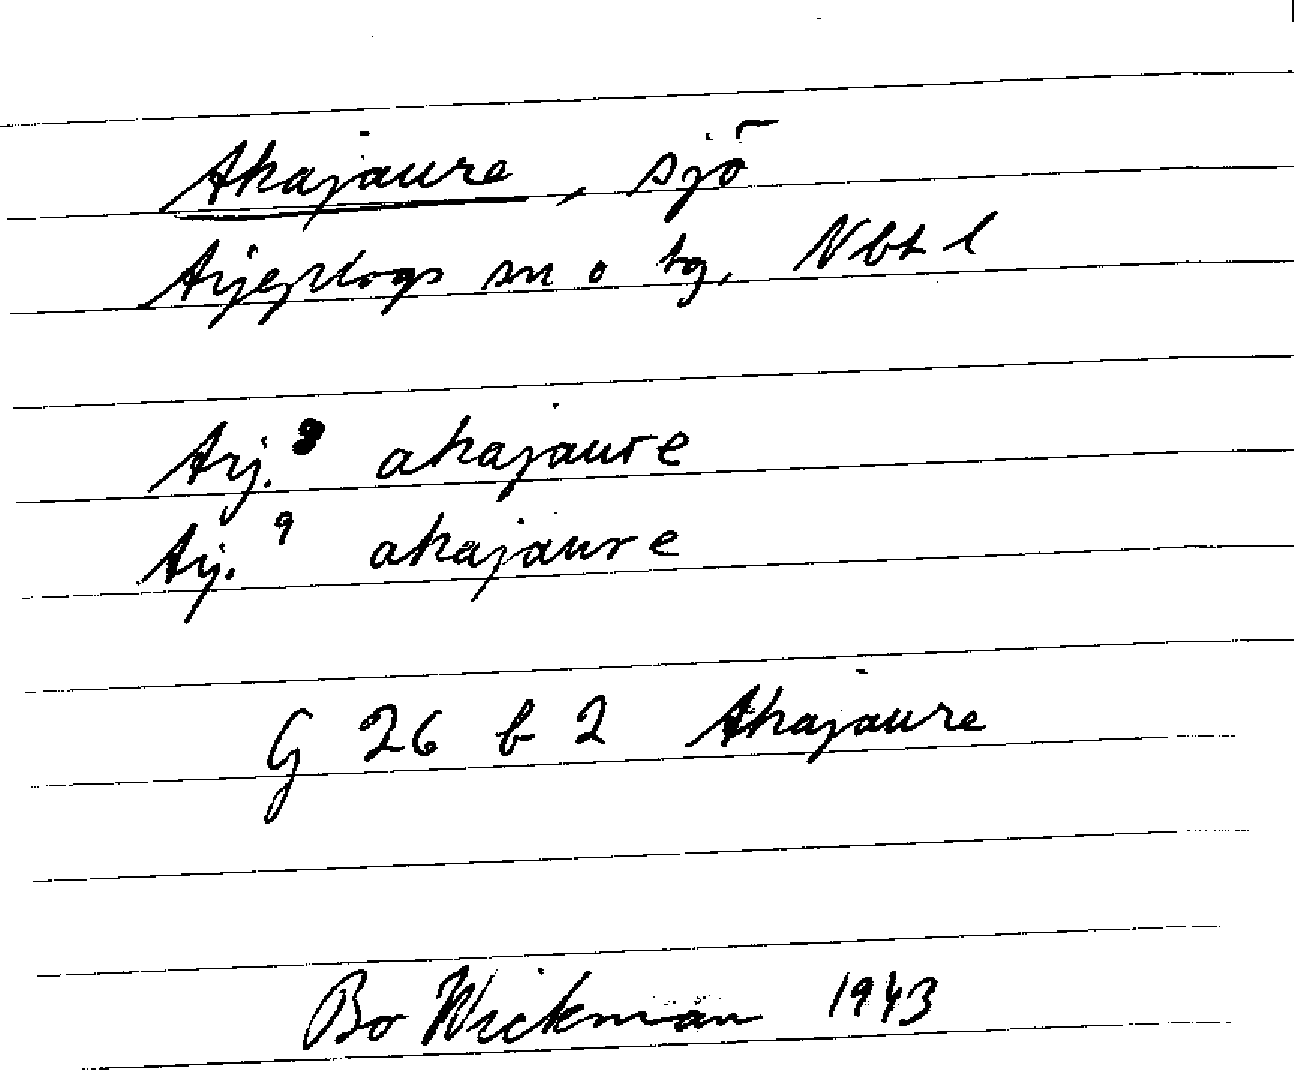 Akajaure, sjö
Arjeplogs sn o tg, Nbt l
Arj. 8 akajaure
Arj. 9 akajaure
G 26 b 2 Akajaure
Bo Wickman 1943